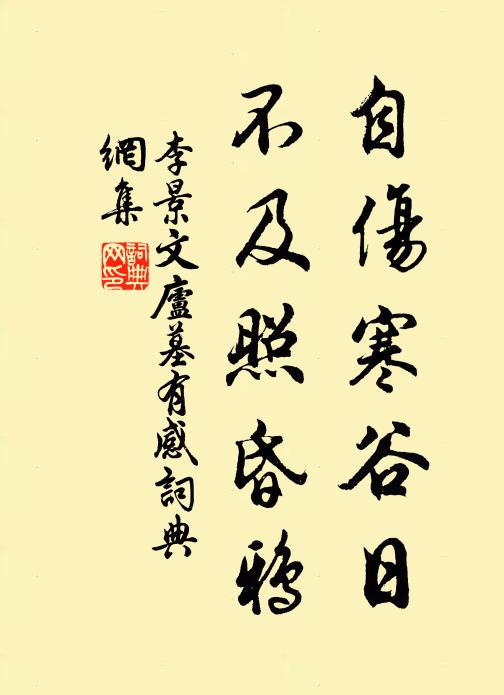 自傷寒谷日
不及照昏鴉
李景文廬墓有感詞典
網集
詞典網印